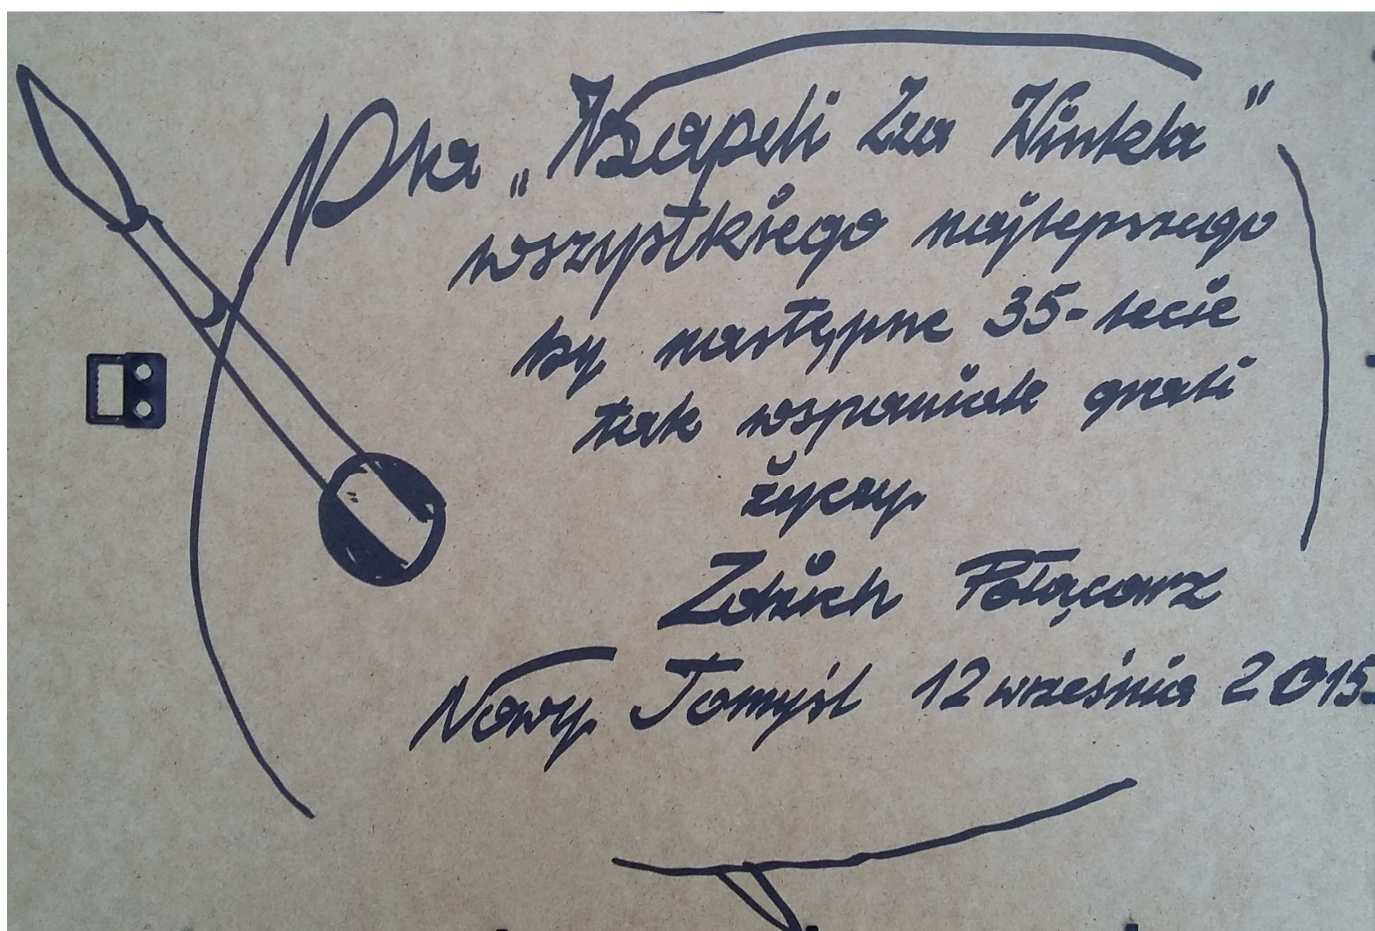 Dla „Kapeli Zza Winkla”
wszystkiego najlepszego
by następne 35-lecie
tak wspaniale grali
życzy
Zdzich Połącarz
Nowy Tomyśl 12 września 2015